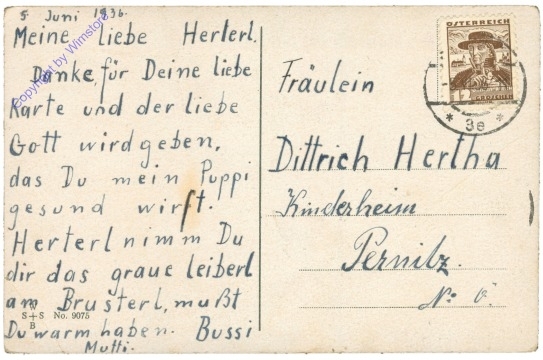 5. Juni 1936.
Meine liebe Herterl.
Danke, für Deine liebe
Karte und der liebe
Gott wird geben,
das Du mein Puppi
gesund wirst.
Herterl nimm Du
dir das graue leiberl
am Brusterl, mußt
Du warm haben. Bussi
Mutti.
S+S No. 9075
B
Copyright by Wimstore
ÖSTERREICH
GROSCHEN
* 3e *
Fräulein
Dittrich Hertha
Kinderheim
Pernitz.
N. Ö.